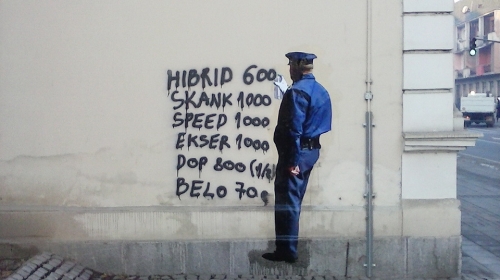 HIBRID 600
SKANK 1000
SPEED 1000
EKSER 1000
DOP 800 (1/2)
BELO 70